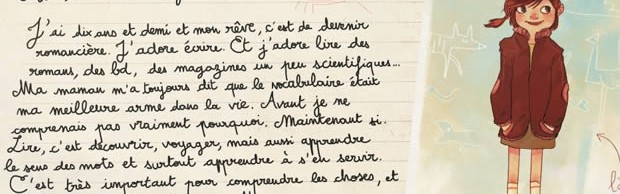 J'ai dix ans et demi et mon rêve, c'est de devenir
romancière. J'adore écrire. Et j'adore lire des
romans, des bd, des magazines un peu scientifiques...
Ma maman m'a toujours dit que le vocabulaire était
ma meilleure arme dans la vie. Avant je ne
comprenais pas vraiment pourquoi. Maintenant si.
Lire, c'est découvrir, voyager, mais aussi apprendre
le sens des mots et surtout apprendre à s'en servir.
C'est très important pour comprendre les choses, et